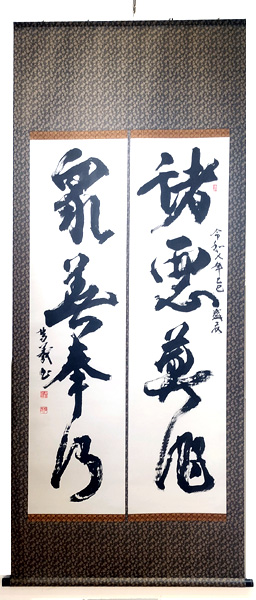 諸惡莫作
令和八年乙巳盛夏
眾善奉行